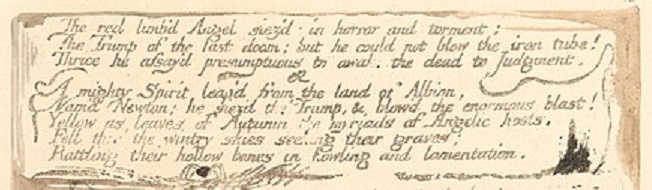 The red limb'd Angel siez'd in horror and torment;
The Trump of the last doom; but he could not blow the iron tube!
Thrice he assay'd presumptuous to awake the dead to Judgment.
A mighty Spirit leap'd from the land of Albion,
Nam'd Newton; he siez'd the Trump, & blow'd the enormous blast!
Yellow as leaves of Autumn the myriads of Angelic hosts,
Fell thro' the wintry skies seeking their graves;
Rattling their hollow bones in howling and lamentation.